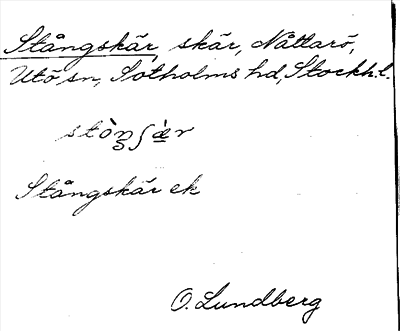 Stångskär, skär, Nåttarö,
Utö sn, Sotholms hd, Stockh. l.
Stångskär ek
O. Lundberg